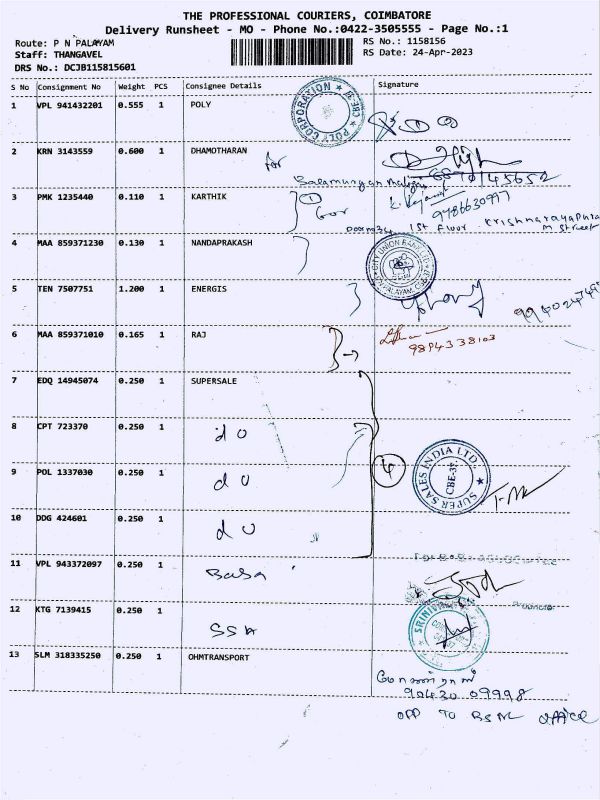 THE PROFESSIONAL COURIERS, COIMBATORE
Delivery Runsheet - MO - Phone No.:0422-3505555 - Page No.:1
Route: P N PALAYAM
RS No.: 1158156
Staff: THANGAVEL
RS Date: 24-Apr-2023
DRS No.: DCJB115815601
S No Consignment No Weight PCS Consignee Details Signature
1 VPL 941432201 0.555 1 POLY
POLY CORPORATION
2 KRN 3143559 0.600 1 DHAMOTHARAN
for
3 PMK 1235440 0.110 1 KARTHIK
1
9786630977
Door no 34 1st Floor
4 MAA 859371230 0.130 1 NANDAPRAKASH
CITY UNION BANK LTD
5 TEN 7507751 1.200 1 ENERGIS
6 MAA 859371010 0.165 1 RAJ
9894338103
7 EDQ 14945074 0.250 1 SUPERSALE
8 CPT 723370 0.250 1 do
9 POL 1337030 0.250 1 do
SUPER SALES INDIA LTD.
CBE-37
10 DDG 424601 0.250 1 do
11 VPL 943372097 0.250 1 Baba
12 KTG 7139415 0.250 1 SSH
13 SLM 318335250 0.250 1 OHMTRANSPORT
90430 09998
OPP TO BSNL office